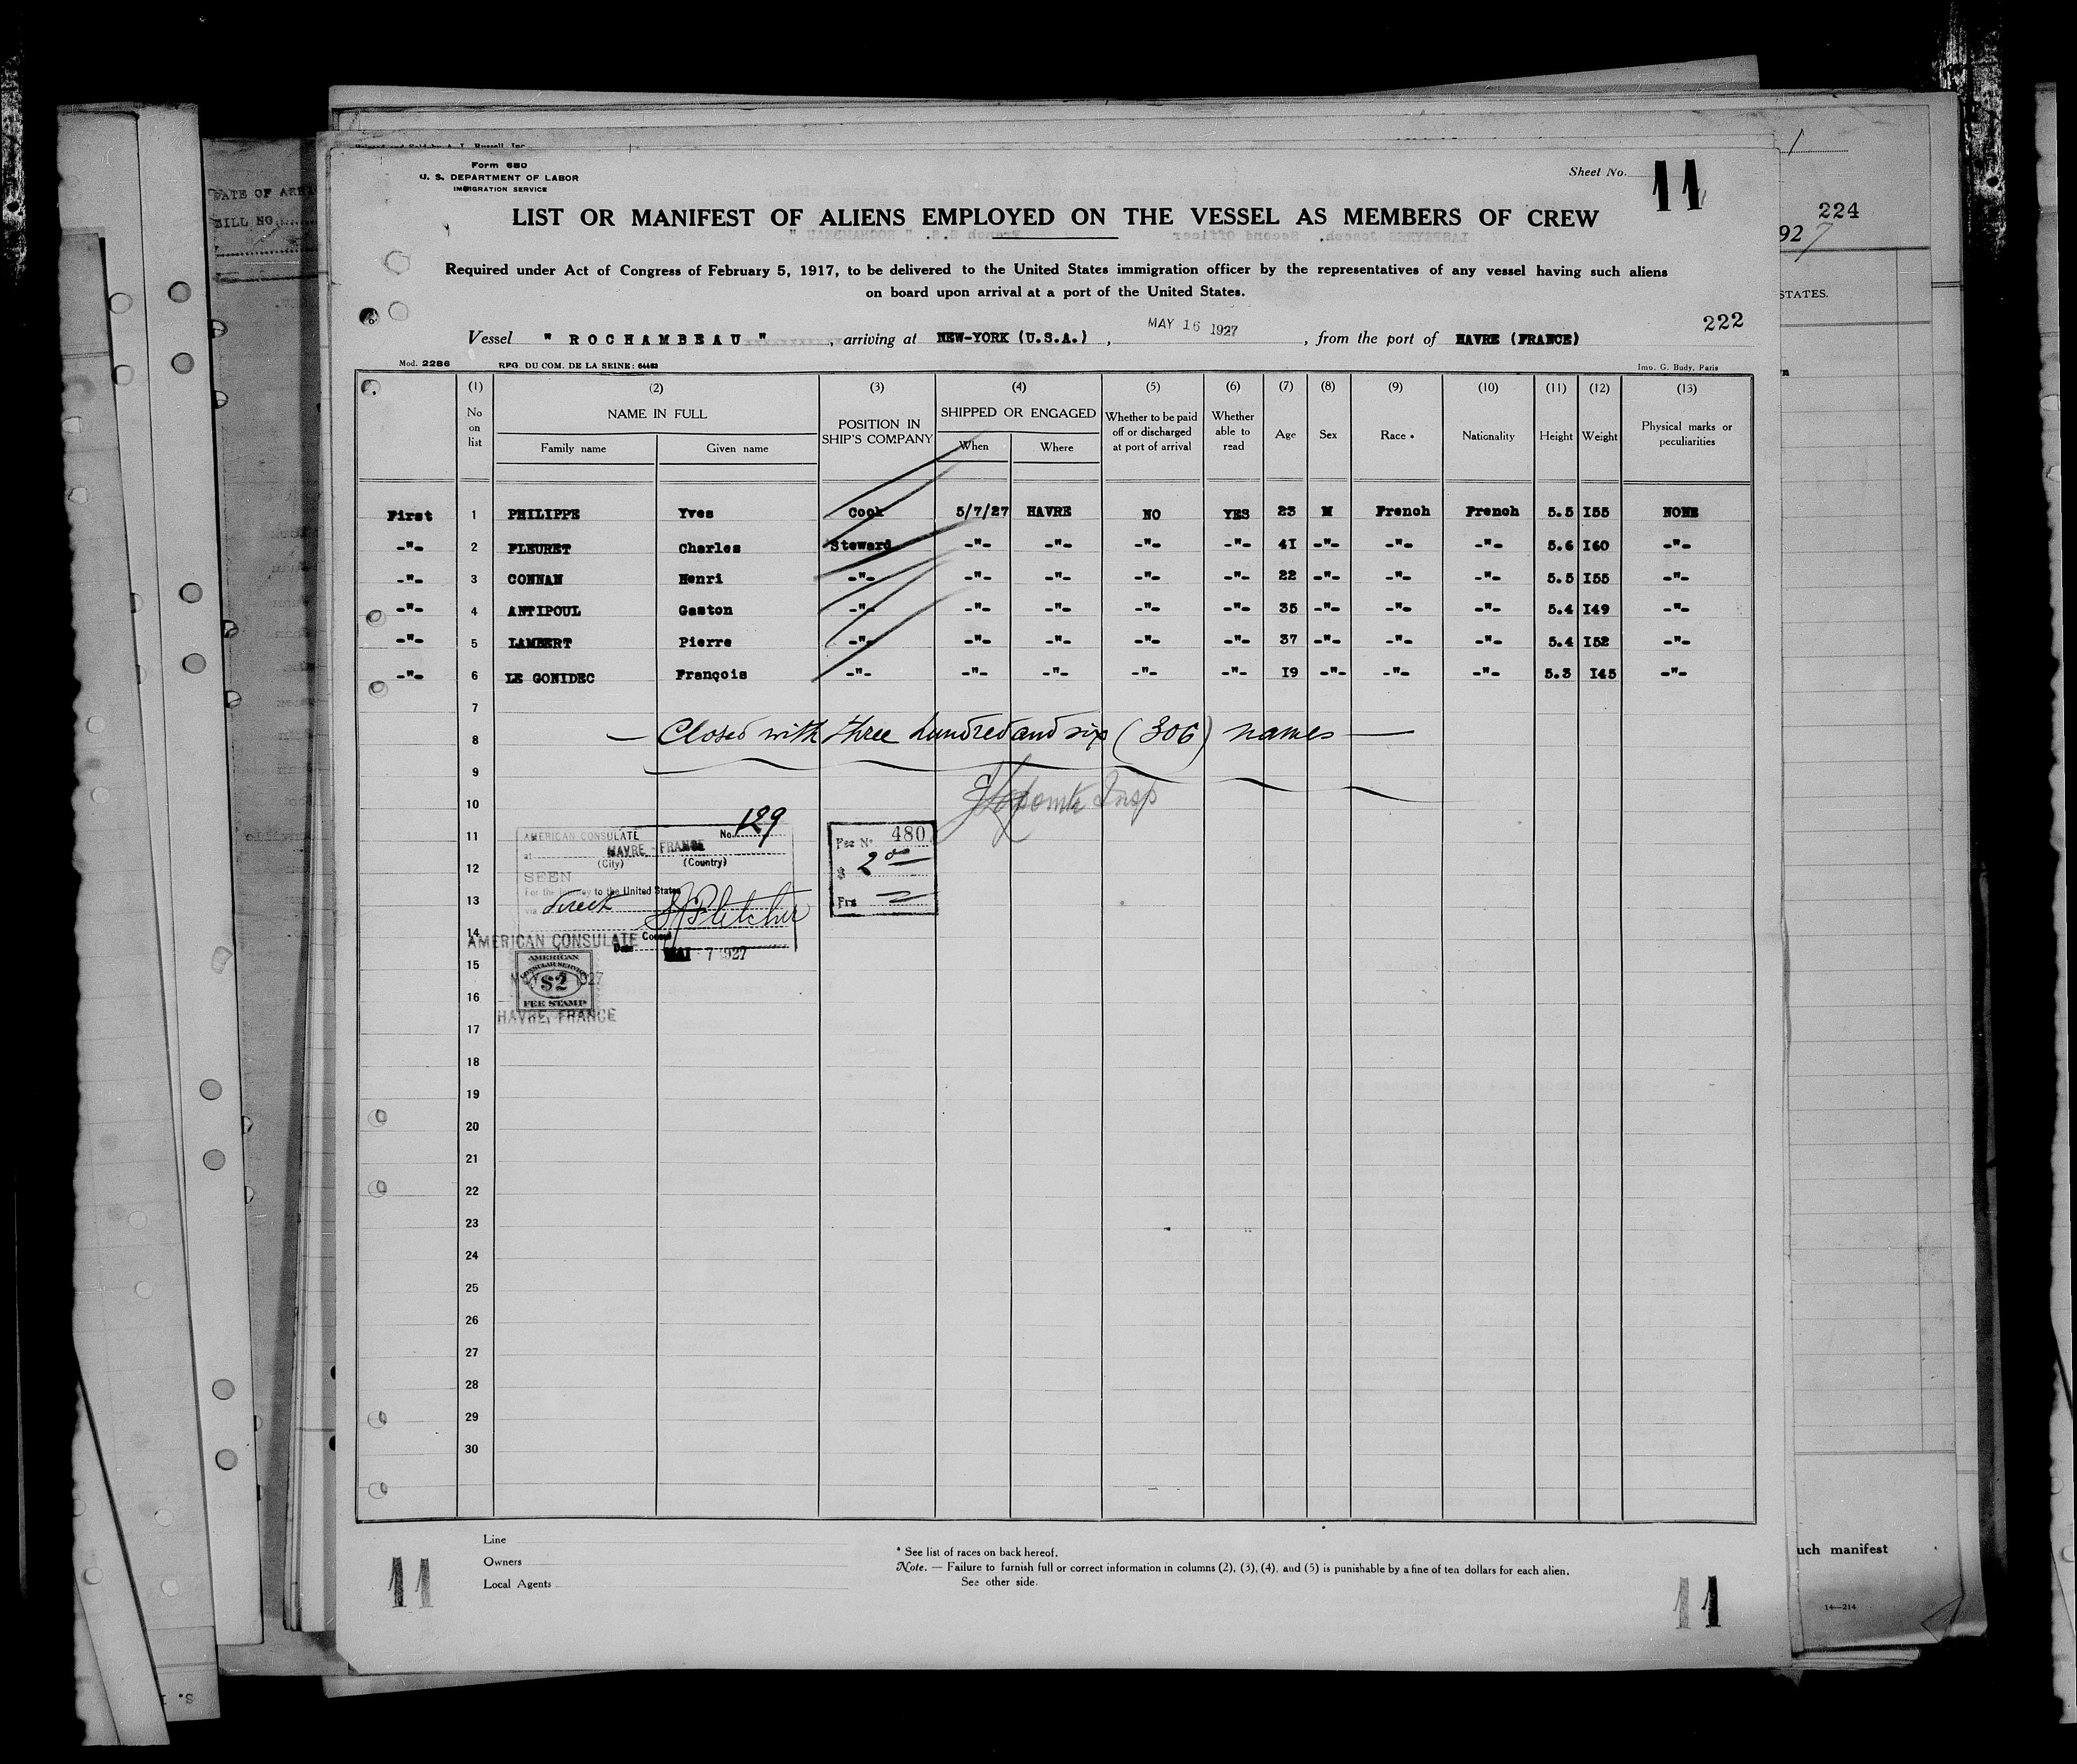 Form 680
U. S. DEPARTMENT OF LABOR
IMMIGRATION SERVICE
Sheet No. 11
LIST OR MANIFEST OF ALIENS EMPLOYED ON THE VESSEL AS MEMBERS OF CREW
Required under Act of Congress of February 5, 1917, to be delivered to the United States immigration officer by the representatives of any vessel having such aliens
on board upon arrival at a port of the United States.
222
Vessel " ROCHAMBEAU " , arriving at NEW-YORK (U.S.A.) , MAY 16 1927 , from the port of HAVRE (FRANCE)
Mod. 2286 REG. DU COM. DE LA SEINE: Imp. G. Budy, Paris
(1) (2) (3) (4) (5) (6) (7) (8) (9) (10) (11) (12) (13)
No on list NAME IN FULL Family name Given name POSITION IN SHIP'S COMPANY SHIPPED OR ENGAGED When Where Whether to be paid off or discharged at port of arrival Whether able to read Age Sex Race * Nationality Height Weight Physical marks or peculiarities
First 1 PHILIPPE Yves Cook 5/7/27 HAVRE NO YES 23 M French French 5.5 I55 NONE
-"- 2 FLEURET Charles Steward -"- -"- -"- -"- 4I -"- -"- -"- 5.6 I60 -"-
-"- 3 CONNAN Henri -"- -"- -"- -"- -"- 22 -"- -"- -"- 5.5 I55 -"-
-"- 4 ANTIPOUL Gaston -"- -"- -"- -"- -"- 35 -"- -"- -"- 5.4 I49 -"-
-"- 5 LAMBERT Pierre -"- -"- -"- -"- -"- 37 -"- -"- -"- 5.4 I52 -"-
-"- 6 LE GONIDEC François -"- -"- -"- -"- -"- I9 -"- -"- -"- 5.3 I45 -"-
7
8 — Closed with three hundred and six (306) names —
9
10 Insp
11
12
13
14
15
16
17
18
19
20
21
22
23
24
25
26
27
28
29
30
AMERICAN CONSULATE No. 129
at HAVRE - FRANCE
(City) (Country)
SEEN
For the journey to the United States
via direct Fletcher
Consul
Date MAI 7 1927
Fee No 480
$ 2 00
Frs
AMERICAN CONSULATE
AMERICAN
CONSULAR SERVICE
$2
FEE STAMP
HAVRE, FRANCE
Line
Owners
Local Agents
* See list of races on back hereof.
Note. — Failure to furnish full or correct information in columns (2), (3), (4), and (5) is punishable by a fine of ten dollars for each alien.
See other side.
11
11
DATE OF
BILL NO.
224
927
STATES.
uch manifest
14—214